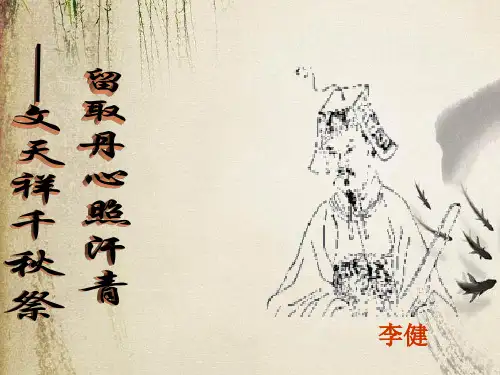 留取丹心照汗青
——文天祥千秋祭
李健